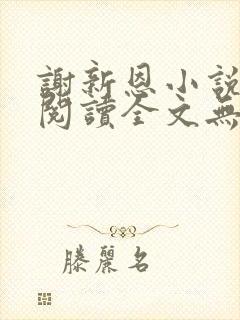 謝新恩小說
閱讀全文無
滕麗名